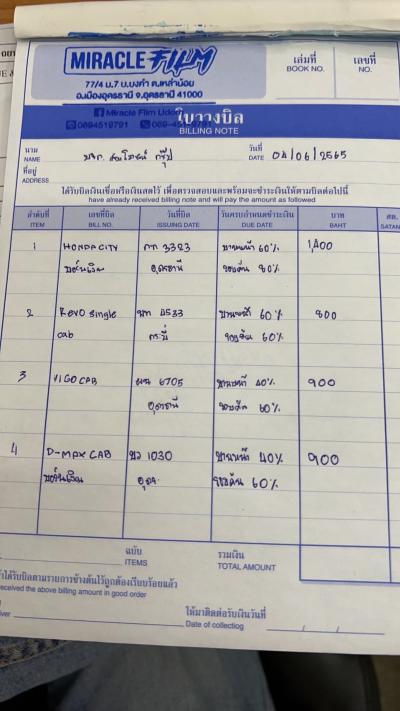 MIRACLE FILM
77/4 ม.7 บ.บงคำ ต.เหล่าน้อย
อ.เมืองอุดรธานี จ.อุดรธานี 41000
Miracle Flim Udon
0894519791
ใบวางบิล
BILLING NOTE
เล่มที่ เลขที่
BOOK NO. NO.
นาม
NAME
วันที่
DATE 04/06/2565
ที่อยู่
ADDRESS
ได้รับบิลเงินเชื่อหรือเงินสดไว้ เพื่อตรวจสอบและพร้อมจะชำระเงินให้ตามบิลต่อไปนี้
have already received billing note and will pay the amount as followed
ลำดับที่ เลขที่บิล วันที่บิล วันครบกำหนดชำระเงิน บาท สต.
ITEM BILL NO. ISSUING DATE DUE DATE BAHT SATAN
1 HONDA CITY กก 3323 บานหน้า 60% 1,400
อุดรธานี รอบคัน 80%
2 Revo single 4533 บานหน้า 60% 800
cab กระบี่ รอบคัน 60%
3 VIGO CAB 6705 บานหน้า 40% 900
อุดรธานี รอบคัน 60%
4 D-MAX CAB 1030 บานหน้า 40% 900
อุดร รอบคัน 60%
ฉบับ รวมเงิน
ITEMS TOTAL AMOUNT
ได้รับบิลตามรายการข้างต้นไว้ถูกต้องเรียบร้อยแล้ว
received the above billing amount in good order
ให้มาติดต่อรับเงินวันที่
Date of collectiog / /